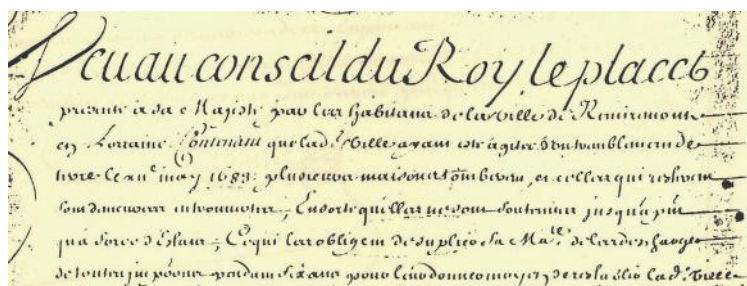 Veu au conseil du Roy, le placet
presenté à sa Majesté par les habitans de la ville de Remiremont
en Lorraine Contenant que lad.e ville ayant esté agitée d'un tremblement de
terre le xii.e may 1682. plusieurs maisons tomberent, et celles qui resterent
sont demeurées entrouvertes, Ensorte qu'elles ne sont soutenues jusqu'à pñt
qu'à force d'Estaies, Ce qui les obligent de suplier Sa Ma.té de les descharger
de toutes impõons pendant six ans pour leur donner moyen de restablir lad.e ville